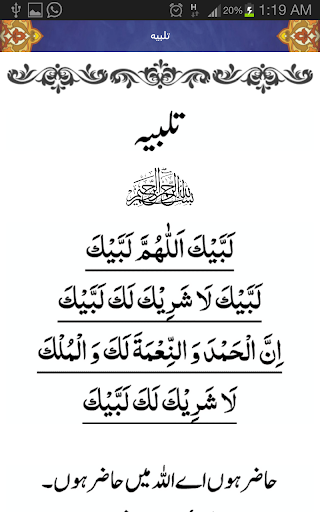 20% 1:19 AM
تلبیه
تلبیه
بسم الله الرحمن الرحيم
لَبَّيْكَ اَللّٰهُمَّ لَبَّيْكَ
لَبَّيْكَ لَا شَرِيْكَ لَكَ لَبَّيْكَ
اِنَّ الْحَمْدَ وَ النِّعْمَةَ لَكَ وَ الْمُلْكَ
لَا شَرِيْكَ لَكَ لَبَّيْكَ
حاضر ہوں اے اللہ میں حاضر ہوں۔